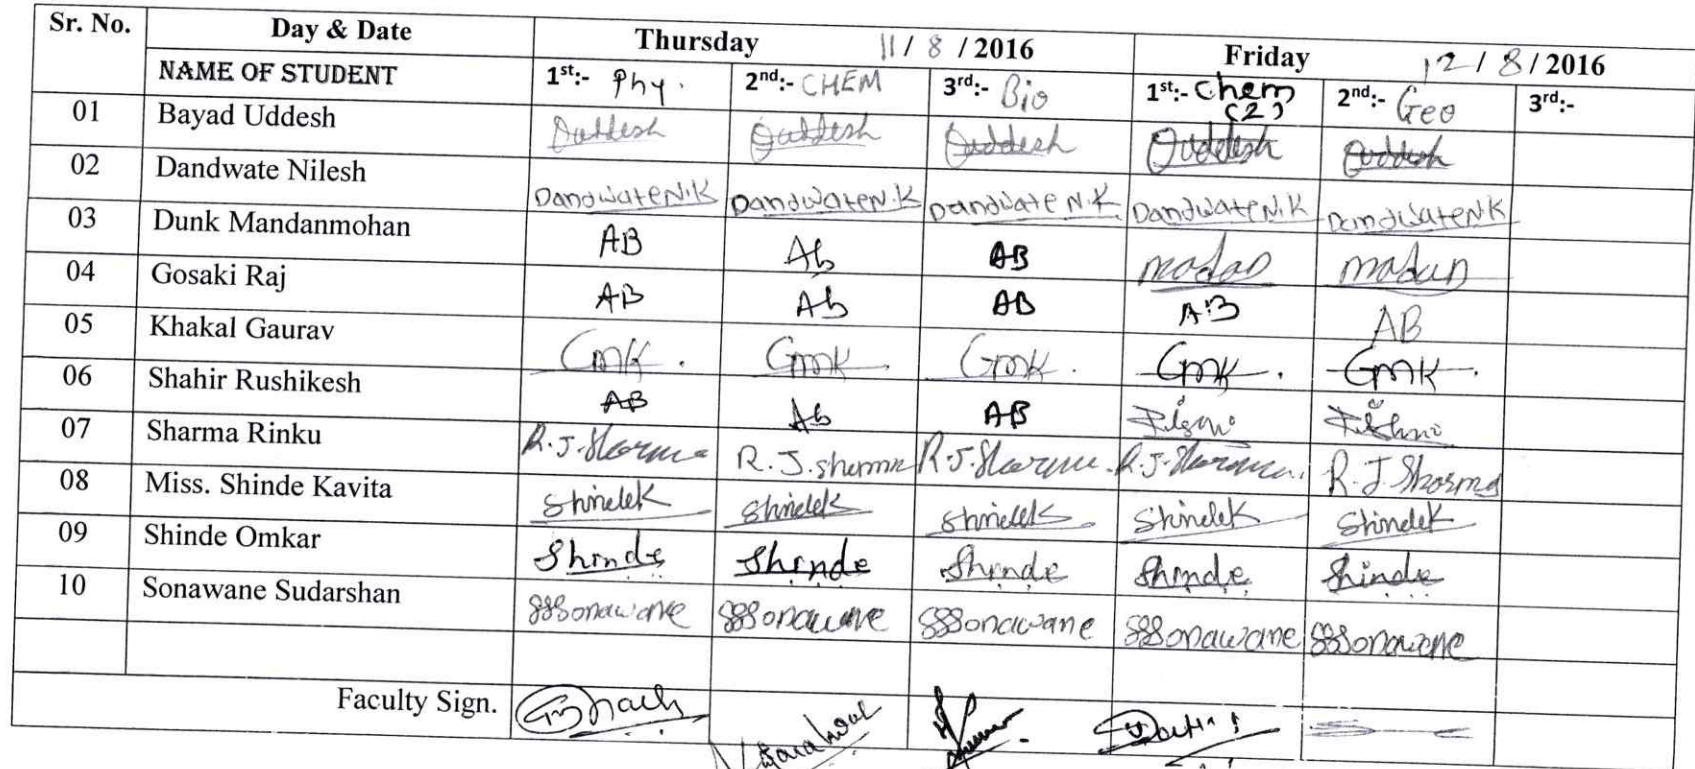 Sr. No. Day & Date Thursday 11 / 8 / 2016 Friday 12 / 8 / 2016
NAME OF STUDENT 1st:- Phy. 2nd:- CHEM 3rd:- Bio 1st:- Chem (2) 2nd:- Geo 3rd:-
01 Bayad Uddesh
02 Dandwate Nilesh DandwateN.K DandwateN.K Dandwate N.K DandwateN.K DandwateNK
03 Dunk Mandanmohan AB Ab AB madan madan
04 Gosaki Raj AB Ab AB AB AB
05 Khakal Gaurav GMK. GMK. GMK. GMK. GMK.
06 Shahir Rushikesh AB Ab AB
07 Sharma Rinku R.J.Sharma R.J.sharma R.J.Sharma. R.J.Sharma. R.J.Sharma
08 Miss. Shinde Kavita ShindeK ShindeK ShindeK ShindeK ShindeK
09 Shinde Omkar Shinde Shinde Shinde Shinde Shinde
10 Sonawane Sudarshan SSSonawane SSSonawane SSSonawane SSSonawane SSSonawane
Faculty Sign.